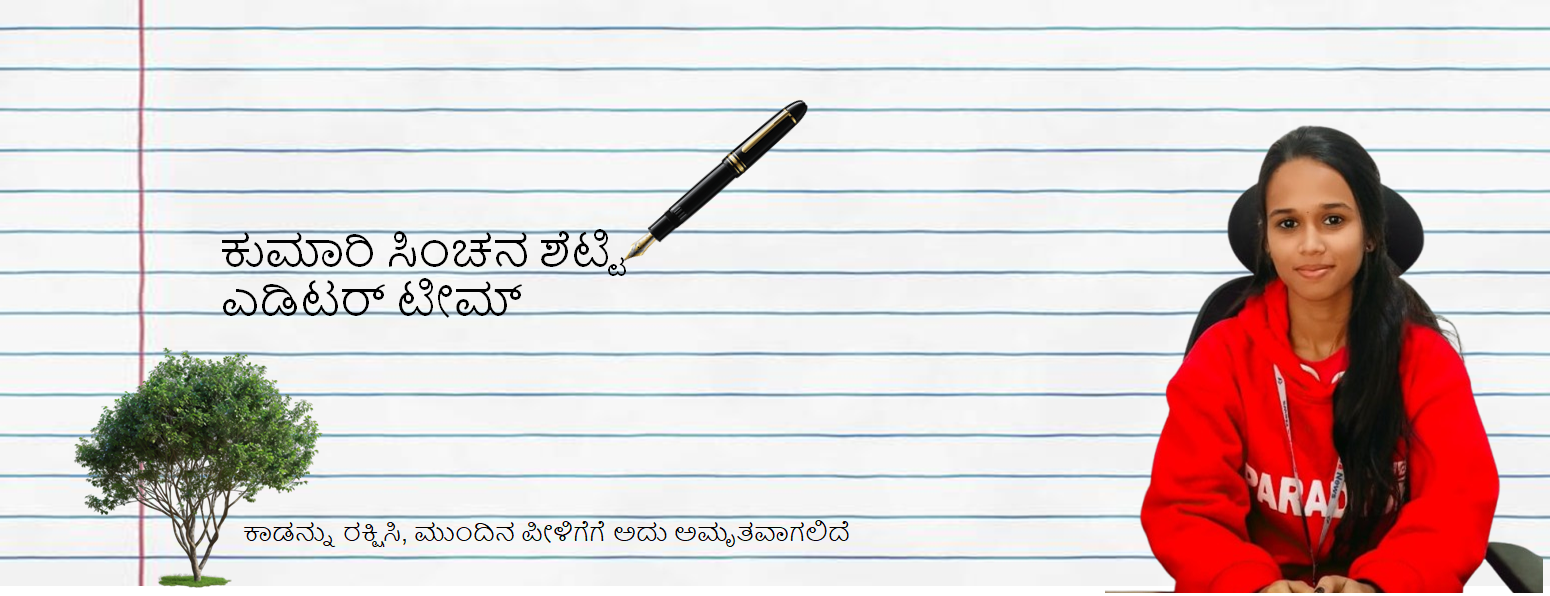 ಕುಮಾರಿ ಸಿಂಚನ ಶೆಟ್ಟಿ
ಎಡಿಟರ್ ಟೀಮ್
ಕಾಡನ್ನು ರಕ್ಷಿಸಿ, ಮುಂದಿನ ಪೀಳಿಗೆಗೆ ಅದು ಅಮೃತವಾಗಲಿದೆ
News